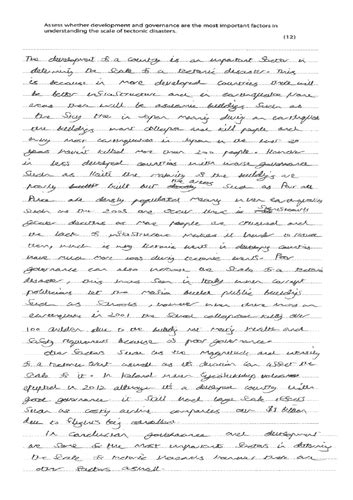 Assess whether development and governance are the most important factors in
understanding the scale of tectonic disasters.
(12)
The development of a country is an important factor in
determining the scale to a tectonic disaster. This
is because in more developed countries there will
be better infrastructure and in earthquake prone
areas there will be aseismic buildings such as
the in Japan meaning during an earthquake
the buildings wont collapse and kill people and
why most earthquakes in Japan in the last
years havent killed more than people. However
in less developed countries with worse governance
such as Haiti the majority of the buildings are
poorly built but the areas such as Port au
Prince are densely populated meaning when earthquakes
such as the occur there is significantly
greater deaths as more people are and
the lack of infrastructure makes it harder to
them, which is why tectonic events in developing countries
have much more during tectonic events. Poor
governance can also increase the scale to a tectonic
disaster, this was seen in Italy when corrupt
politicians let the mafia build public buildings
such as schools, however when there was an
earthquake in 2001 the school collapsed killing over
100 children due to the not meeting health and
safety regulations because of poor governance.
Other factors such as the magnitude and intensity
to a tectonic event aswell as its duration can affect the
scale to it. In Iceland when Eyjafjallajokull
erupted in 2012 although its a developed country with
good governance it still had large scale effects
such as costing airline companies over $ billion
due to flights being cancelled.
In conclusion governance and development
are some to the most important factors in determining
the scale to tectonic hazards however there are
other factors aswell.